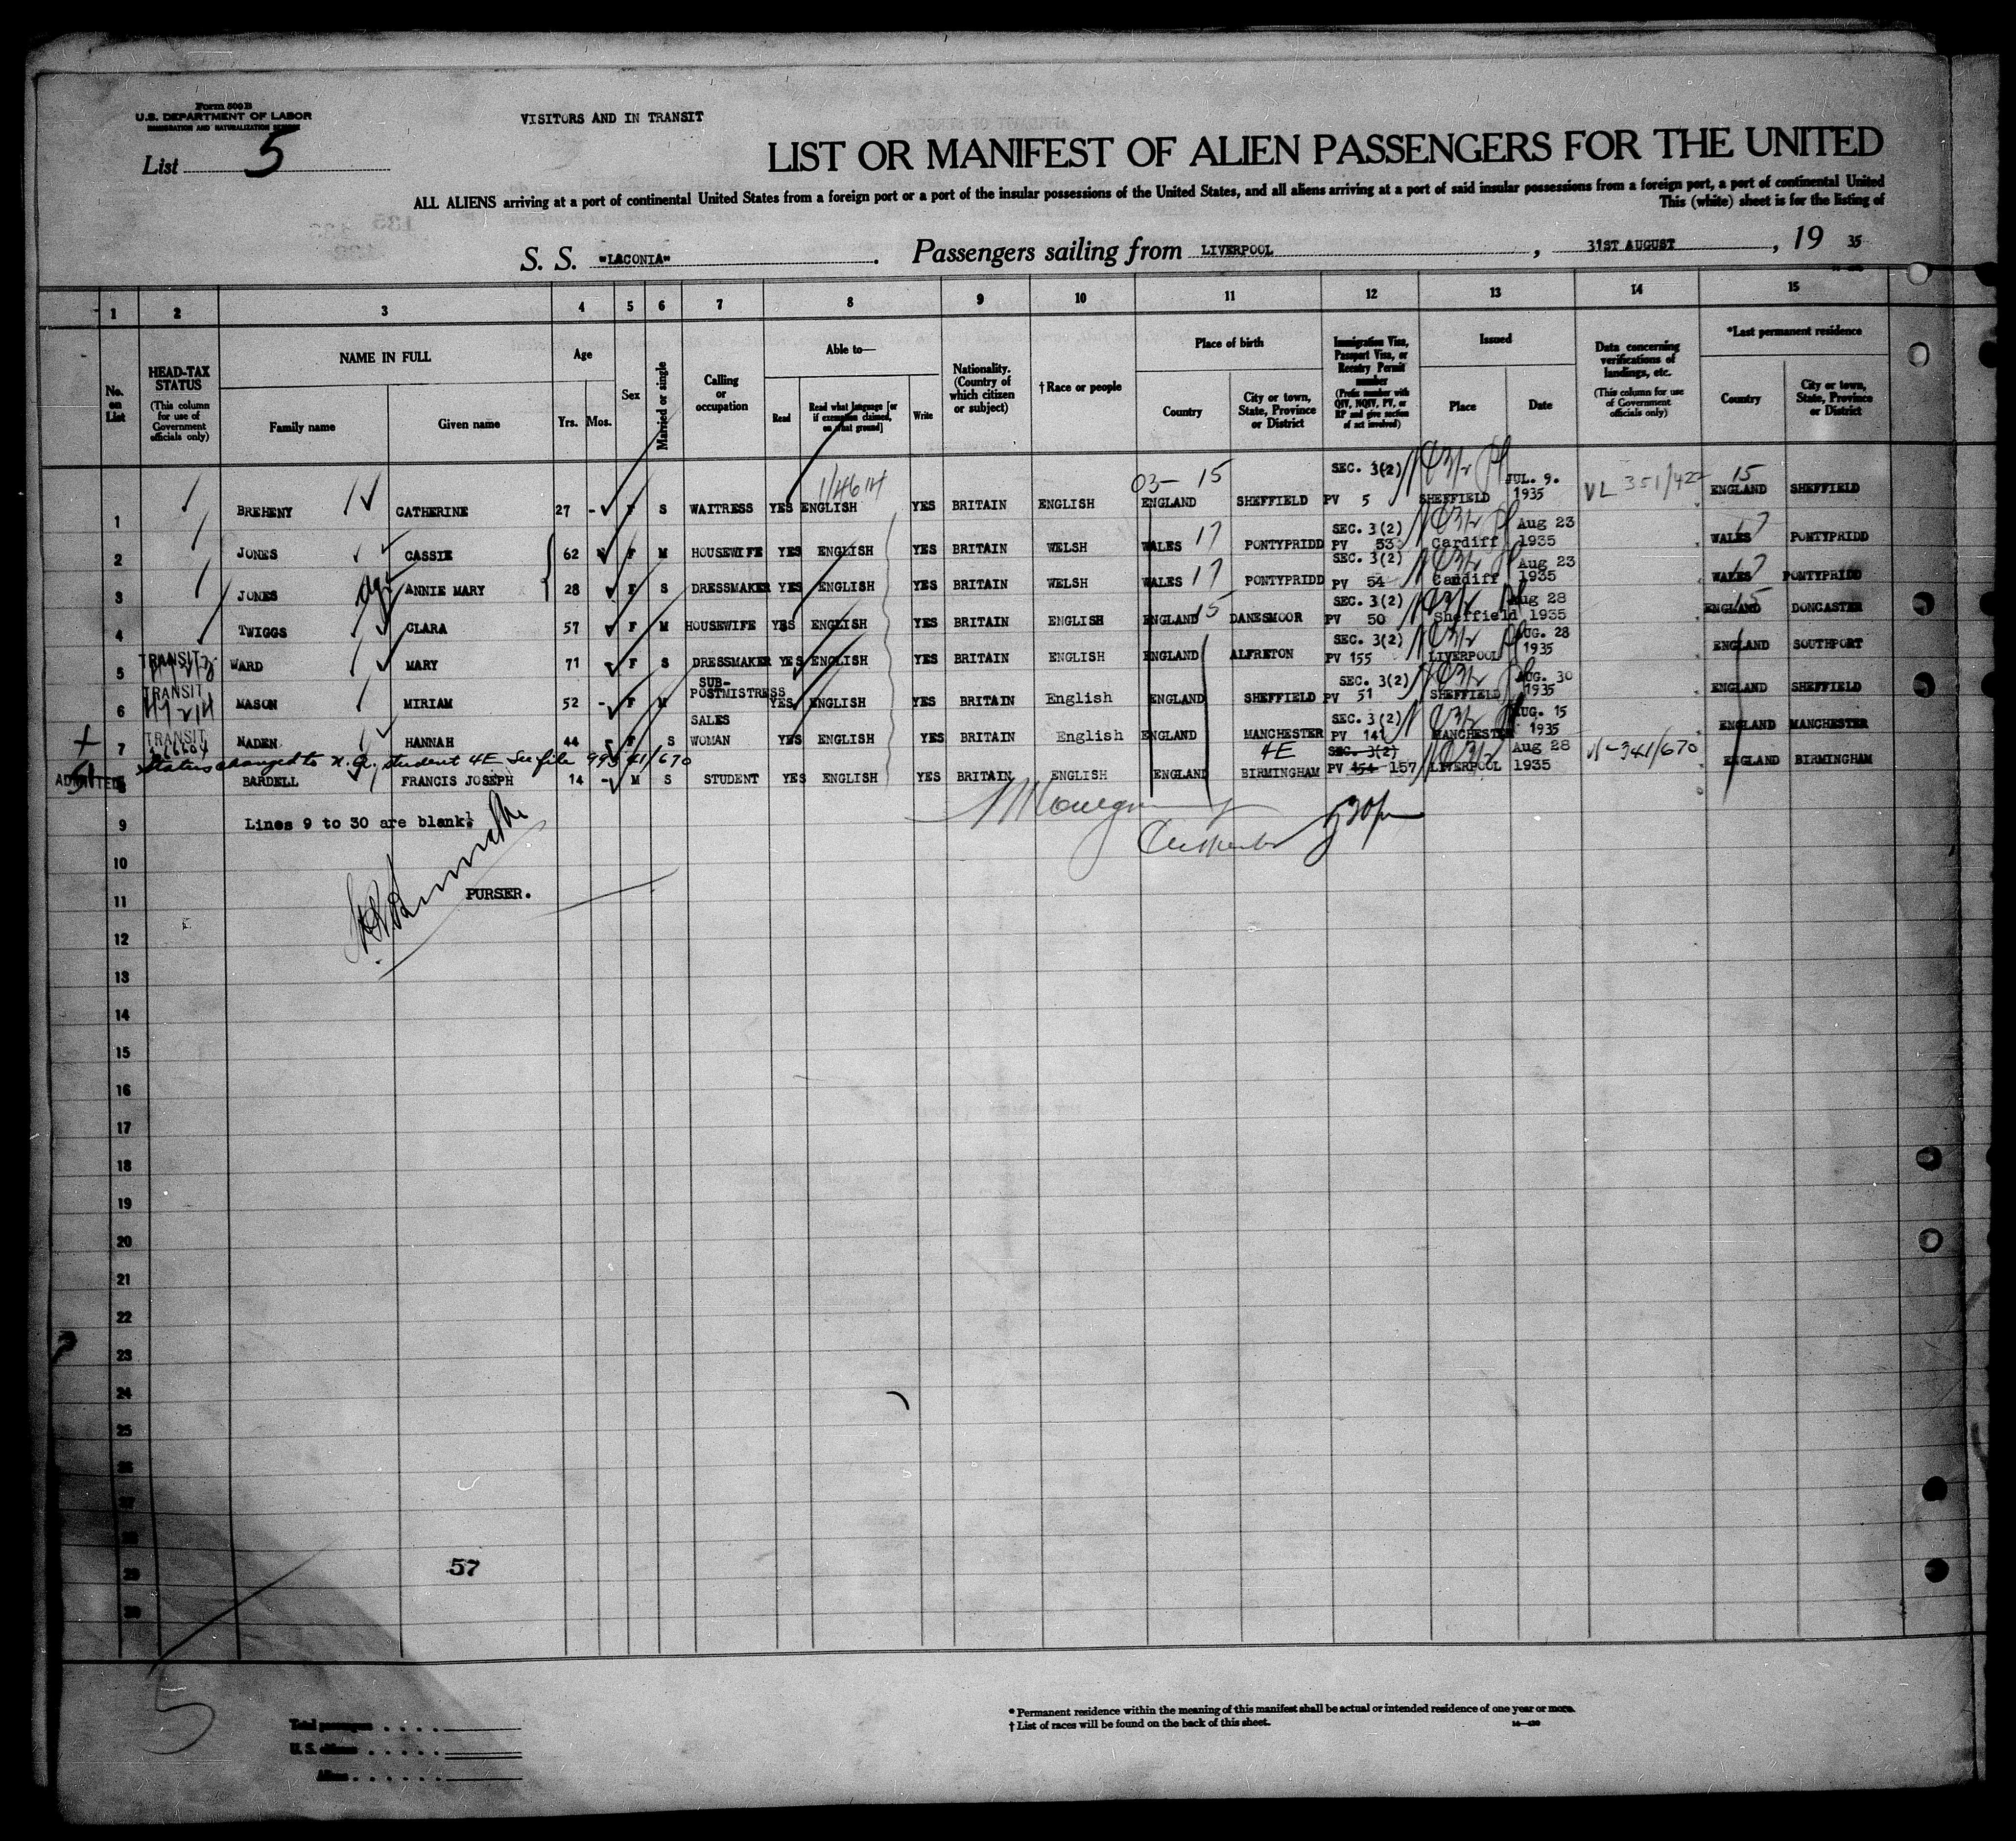 Form 500B
U.S. DEPARTMENT OF LABOR
IMMIGRATION AND NATURALIZATION SERVICE
VISITORS AND IN TRANSIT
List 5
LIST OR MANIFEST OF ALIEN PASSENGERS FOR THE UNITED
ALL ALIENS arriving at a port of continental United States from a foreign port or a port of the insular possessions of the United States, and all aliens arriving at a port of said insular possessions from a foreign port, a port of continental United
This (white) sheet is for the listing of
S. S. "LACONIA" . Passengers sailing from LIVERPOOL , 31ST AUGUST , 19 35
1 2 3 4 5 6 7 8 9 10 11 12 13 14 15
No. on List
HEAD-TAX STATUS
(This column for use of Government officials only)
NAME IN FULL
Family name
Given name
Age
Yrs. Mos.
Sex
Married or single
Calling or occupation
Able to—
Read
Read what language [or if exemption claimed, on what ground]
Write
Nationality. (Country of which citizen or subject)
† Race or people
Place of birth
Country
City or town, State, Province or District
Immigration Visa, Passport Visa, or Reentry Permit number
(Prefix number with QIV, NQIV, PV, or RP and give section of act involved)
Issued
Place
Date
Data concerning verifications of landings, etc.
(This column for use of Government officials only)
*Last permanent residence
Country
City or town, State, Province or District
1 BREHENY CATHERINE 27 - F S WAITRESS YES ENGLISH YES BRITAIN ENGLISH 03- 15 ENGLAND SHEFFIELD SEC. 3(2) PV 5 SHEFFIELD JUL. 9. 1935 VL 351/422 15 ENGLAND SHEFFIELD
2 JONES CASSIE 62 F M HOUSEWIFE YES ENGLISH YES BRITAIN WELSH WALES 17 PONTYPRIDD SEC. 3(2) PV 53 Cardiff Aug 23 1935 WALES 17 PONTYPRIDD
3 JONES ANNIE MARY 28 F S DRESSMAKER YES ENGLISH YES BRITAIN WELSH WALES 17 PONTYPRIDD SEC. 3(2) PV 54 Cardiff Aug 23 1935 WALES 17 PONTYPRIDD
4 TWIGGS CLARA 57 F M HOUSEWIFE YES ENGLISH YES BRITAIN ENGLISH ENGLAND 15 DANESMOOR SEC. 3(2) PV 50 Sheffield Aug 28 1935 ENGLAND 15 DONCASTER
5 TRANSIT WARD MARY 71 F S DRESSMAKER YES ENGLISH YES BRITAIN ENGLISH ENGLAND ALFRETON SEC. 3(2) PV 155 LIVERPOOL AUG. 28 1935 ENGLAND SOUTHPORT
6 TRANSIT MASON MIRIAM 52 - F M SUB-POSTMISTRESS YES ENGLISH YES BRITAIN English ENGLAND SHEFFIELD SEC. 3(2) PV 51 SHEFFIELD AUG. 30 1935 ENGLAND SHEFFIELD
7 TRANSIT NADEN HANNAH 44 - F S SALES WOMAN YES ENGLISH YES BRITAIN English ENGLAND MANCHESTER SEC. 3(2) PV 141 MANCHESTER AUG. 15 1935 ENGLAND MANCHESTER
Status changed to N.Q. student 4E See file 99341/670
ADMITTED 8 BARDELL FRANCIS JOSEPH 14 - M S STUDENT YES ENGLISH YES BRITAIN ENGLISH ENGLAND BIRMINGHAM 4E SEC. 3(2) PV 154 157 LIVERPOOL Aug 28 1935 341/670 ENGLAND BIRMINGHAM
9 Lines 9 to 30 are blank.
10
11 PURSER.
12
13
14
15
16
17
18
19
20
21
22
23
24
25
26
27
28
29 57
30
5
Total passengers
U. S. citizens
Aliens
* Permanent residence within the meaning of this manifest shall be actual or intended residence of one year or more.
† List of races will be found on the back of this sheet.